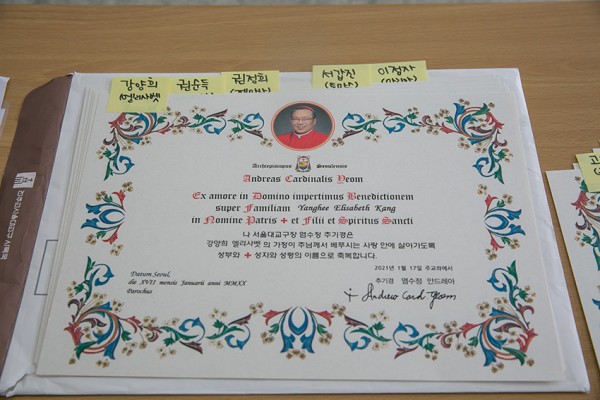 강양희
엘리사벳
권순득
권정희
서갑진
이점자
Archiepiscopus Seoulensis
Andreas Cardinalis Yeom
Ex amore in Domino impertimus Benedictionem
super Familiam Yanghee Elisabeth Kang
in Nomine Patris + et Filii et Spiritus Sancti
나 서울대교구장 염수정 추기경은
강양희 엘리사벳 의 가정이 주님께서 베푸시는 사랑 안에 살아가도록
성부와 + 성자와 성령의 이름으로 축복합니다.
Datum Seoul,
die XVII mensis Januarii anni MMXX
Parochus
2021년 1월 17일 주교좌에서
추기경 염수정 안드레아
+ Andrew Card Yeom